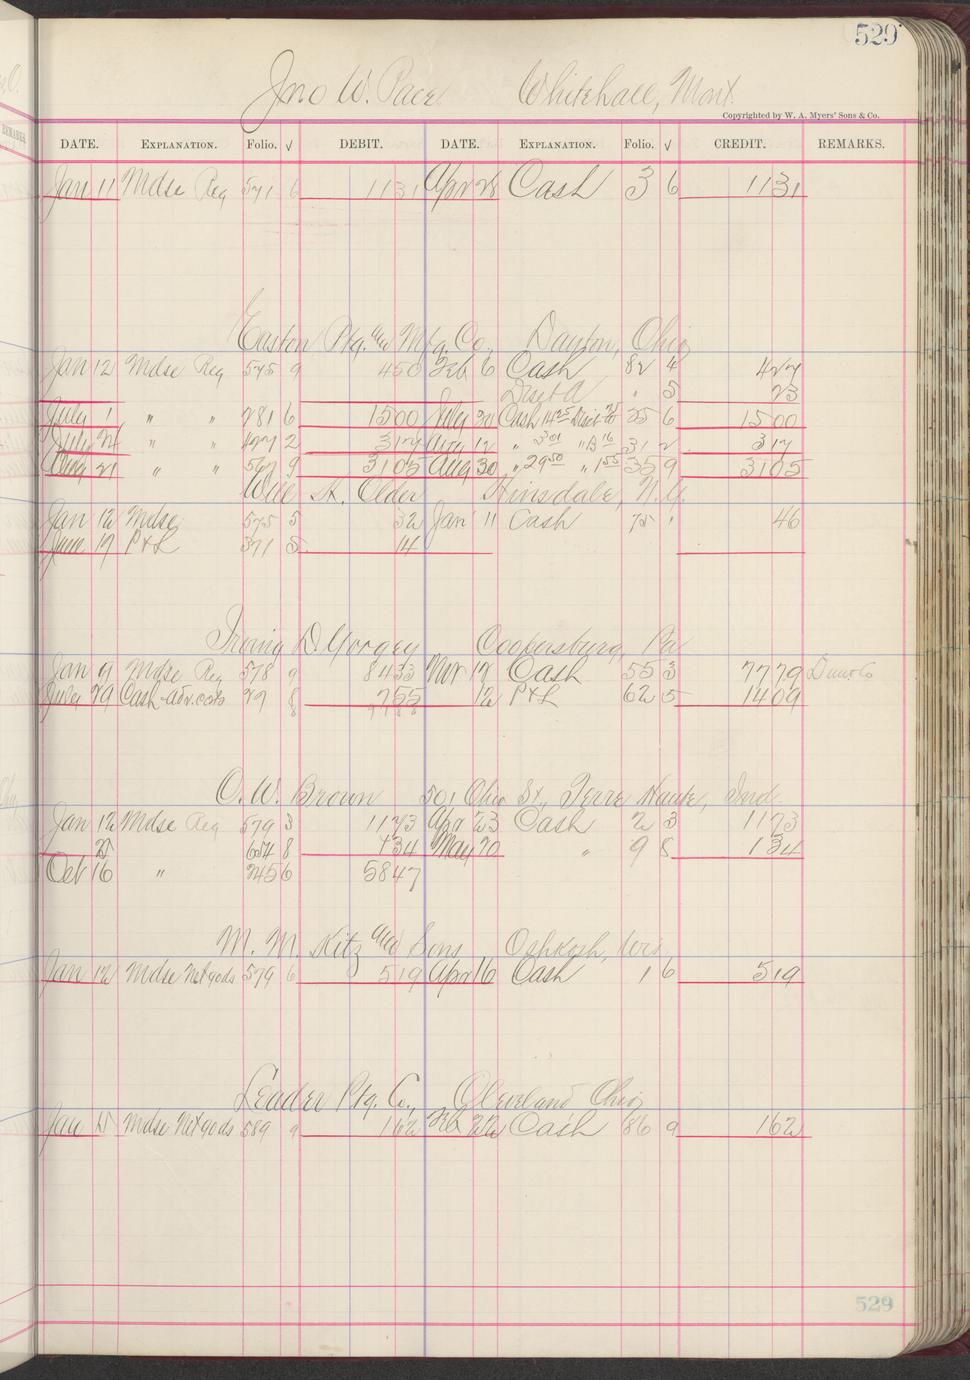 529
Jno W. Pace Whitehall, Mont.
Copyrighted by W. A. Myers' Sons & Co.
DATE. EXPLANATION. Folio. √ DEBIT. DATE. EXPLANATION. Folio. √ CREDIT. REMARKS.
Jan 11 Mdse Reg 571 6 1131 Apr 28 Cash 3 6 1131
Easton Ptg. and Mfg. Co., Dayton, Ohio
Jan 12 Mdse Reg 575 9 450 Feb 6 Cash 82 4 427
Disct A " 5 23
July 1 " " 281 6 1500 July 30 Cash 14 25 Disct 75 25 6 1500
July 24 " " 427 2 317 Aug 12 " 3 01 " B 16 31 2 317
Aug 21 " " 567 9 3105 Aug 30 " 29 50 " 1 55 35 9 3105
Will H. Older Hinsdale, N.Y.
Jan 12 Mdse 575 5 32 Jan 11 Cash 75 1 46
June 19 P&L 371 5 14
Irving D. Yorgey Coopersburg, Pa
Jan 9 Mdse Reg 578 9 8433 Nov 12 Cash 55 3 7779 Dun & Co
June 29 Cash adv. costs 29 8 755 12 P&L 62 5 1409
O. W. Brown 501 Ohio St., Terre Haute, Ind.
Jan 12 Mdse Reg 579 3 1173 Apr 23 Cash 2 3 1173
25 654 8 134 May 20 " 9 8 134
Oct 16 " 245 6 5847
M. M. Kitz and Sons Oshkosh, Wis.
Jan 12 Mdse Net gods 579 6 519 Apr 16 Cash 1 6 519
Leader Ptg. Co., Cleveland Ohio
Jan 15 Mdse Net gods 589 9 162 Feb 22 Cash 86 9 162
529